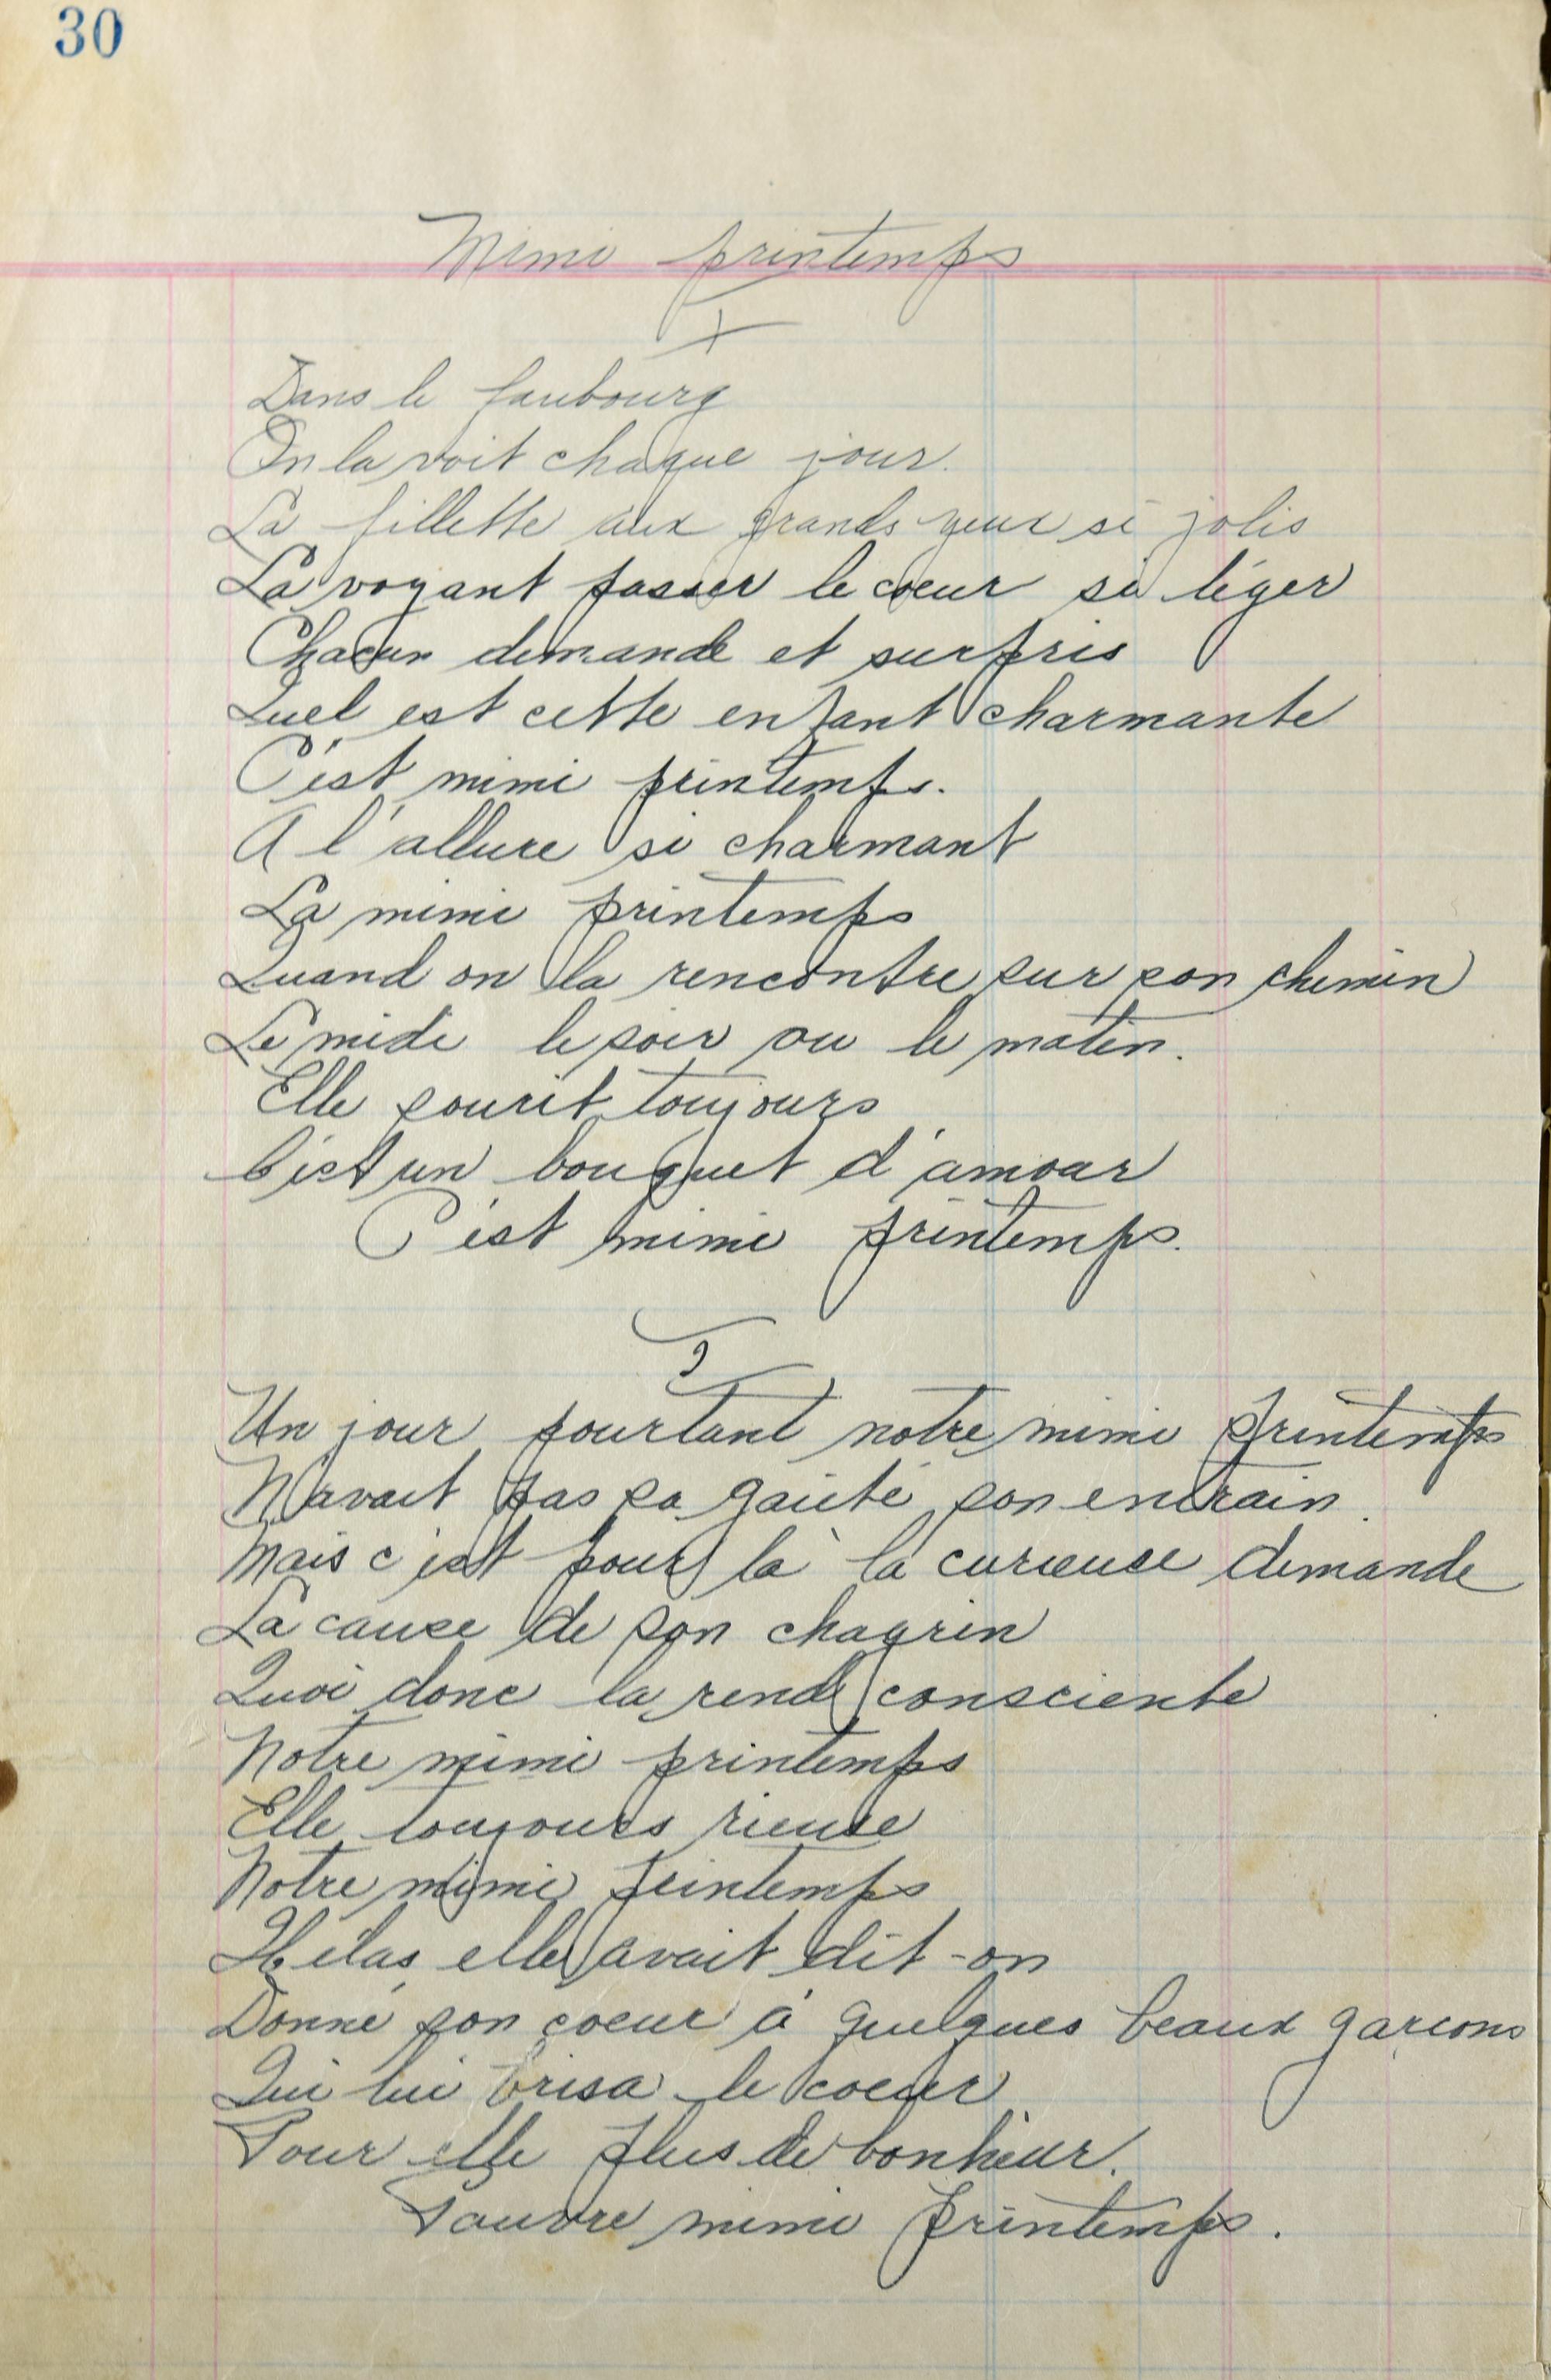 30
Mimi printemps
1
Dans le faubourg
On la voit chaque jour.
La fillette aux grands yeux si jolis
La voyant passer le coeur si léger
Chacun demande et surpris
Quel est cette enfant charmante
C'est mimi printemps.
A l'allure si charmant
La mimi printemps
Quand on la rencontre sur son chemin
Le midi le soir ou le matin.
Elle sourit toujours
C'est un bouquet d'amour
C'est mimi printemps.
2
Un jour pourtant notre mimi printemps
N'avait pas sa gaieté son entrain.
Mais c'est pour là la curieuse demande
La cause de son chagrin
Quoi donc la rend consciente
Notre mimi printemps
Elle toujours rieuse
Notre mimi printemps
Hélas elle avait dit-on
Donné son coeur à quelques beaux garcons
Qui lui brisa le coeur
Pour elle plus de bonheur.
Pauvre mimi printemps.